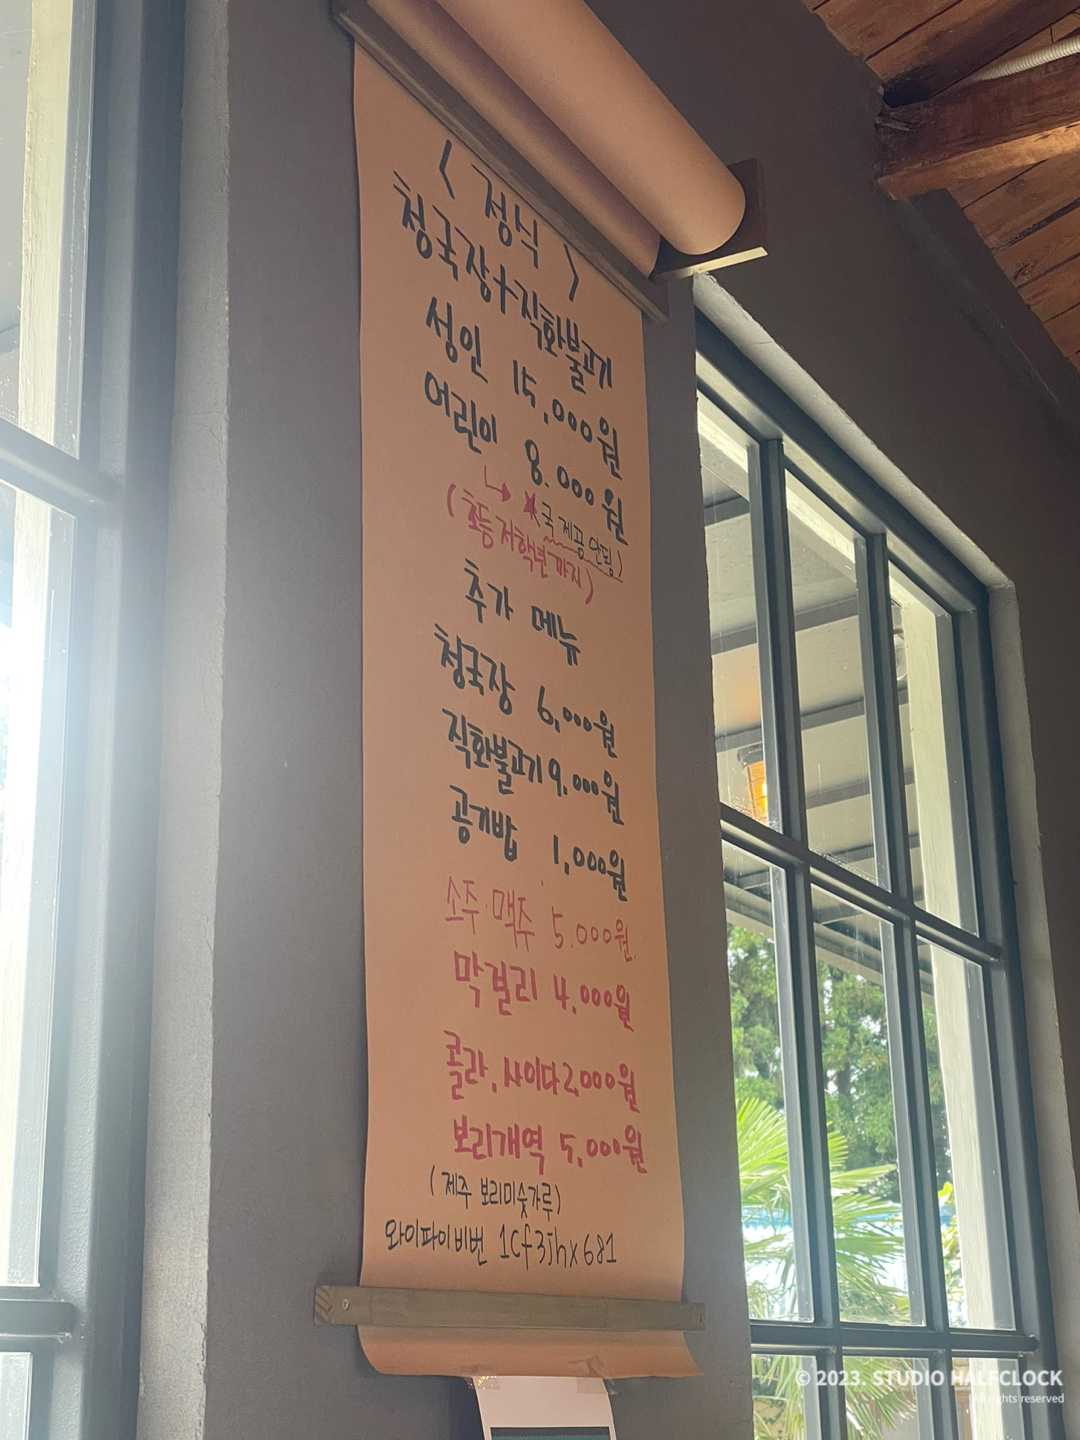 < 정식 >
청국장+직화불고기
성인 15,000원
어린이 8.000원
↳ ★(국 제공 안됨)
(초등 저학년까지)
추가 메뉴
청국장 6,000원
직화불고기 9,000원
공기밥 1,000원
소주·맥주 5.000원
막걸리 4.000원
콜라, 사이다 2,000원
보리개역 5,000원
(제주 보리미숫가루)
와이파이 비번 1cf3jhx681
© 2023. STUDIO HALFCLOCK
All rights reserved